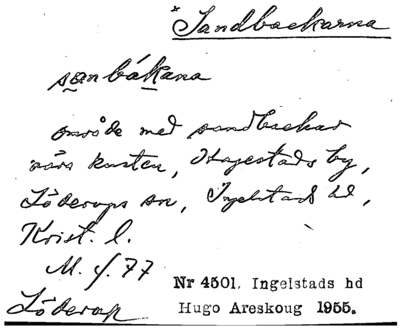 * Sandbackarna
sanbákana
område med sandbackar
nära kusten, Hagestads by,
Löderups sn, Ingelstads hd,
Krist. l.
M. f. 77
Nr 4501. Ingelstads hd
Löderup
Hugo Areskoug 1955.